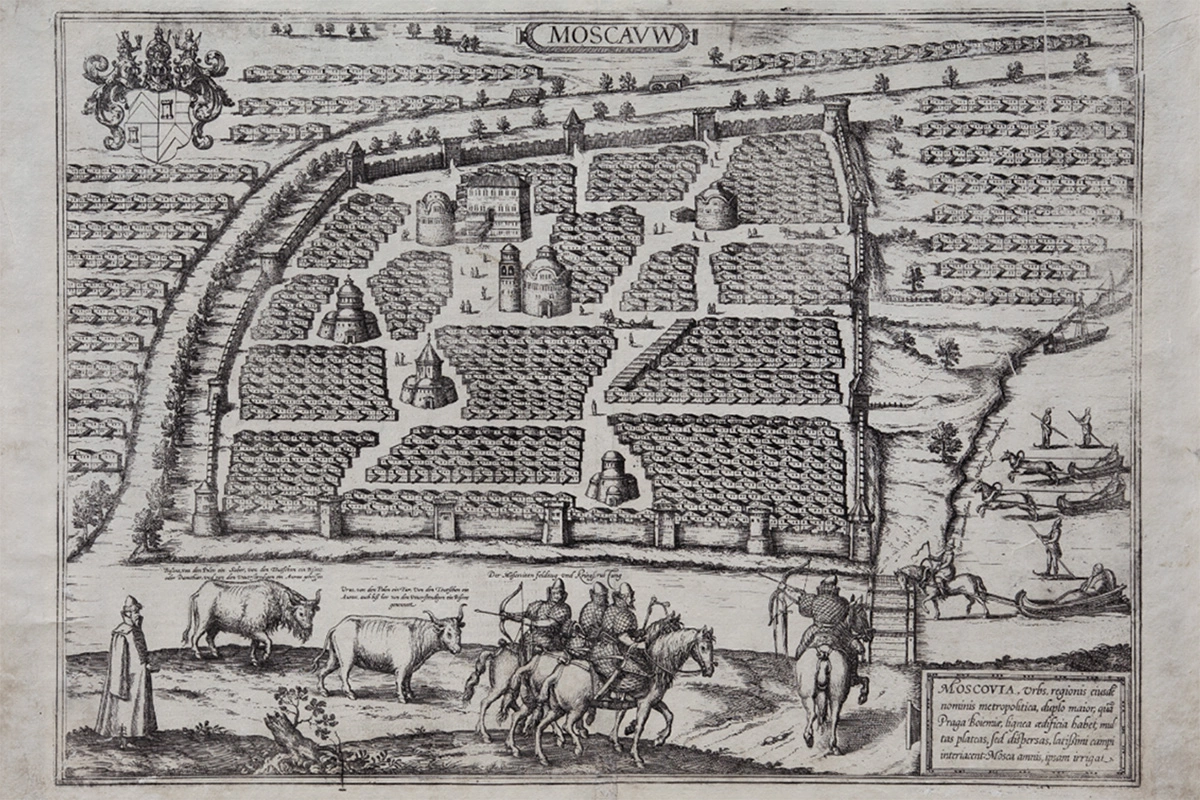 MOSCAVW
Bisons, von den Polen ein Suber, von den Teutschen ein Bisont
oder Damthier, und von den Unverstendigen ein Auror
Urus, von den Polen ein Tur. Von den Teutschen ein
Auror, auch biß her von den Unverstendigen ein Bisont
genennet.
Der Mosoviten feldzug und Kriegsrustung
MOSCOVIA, Urbs, regionis eiusdē
nominis metropolitica, duplo maior, quā
Praga Boiemiæ, lignea ædificia habet, mul
tas plateas, sed dispersas, latissimi campi
interiacent: Mosca amnis, ipsam irrigat